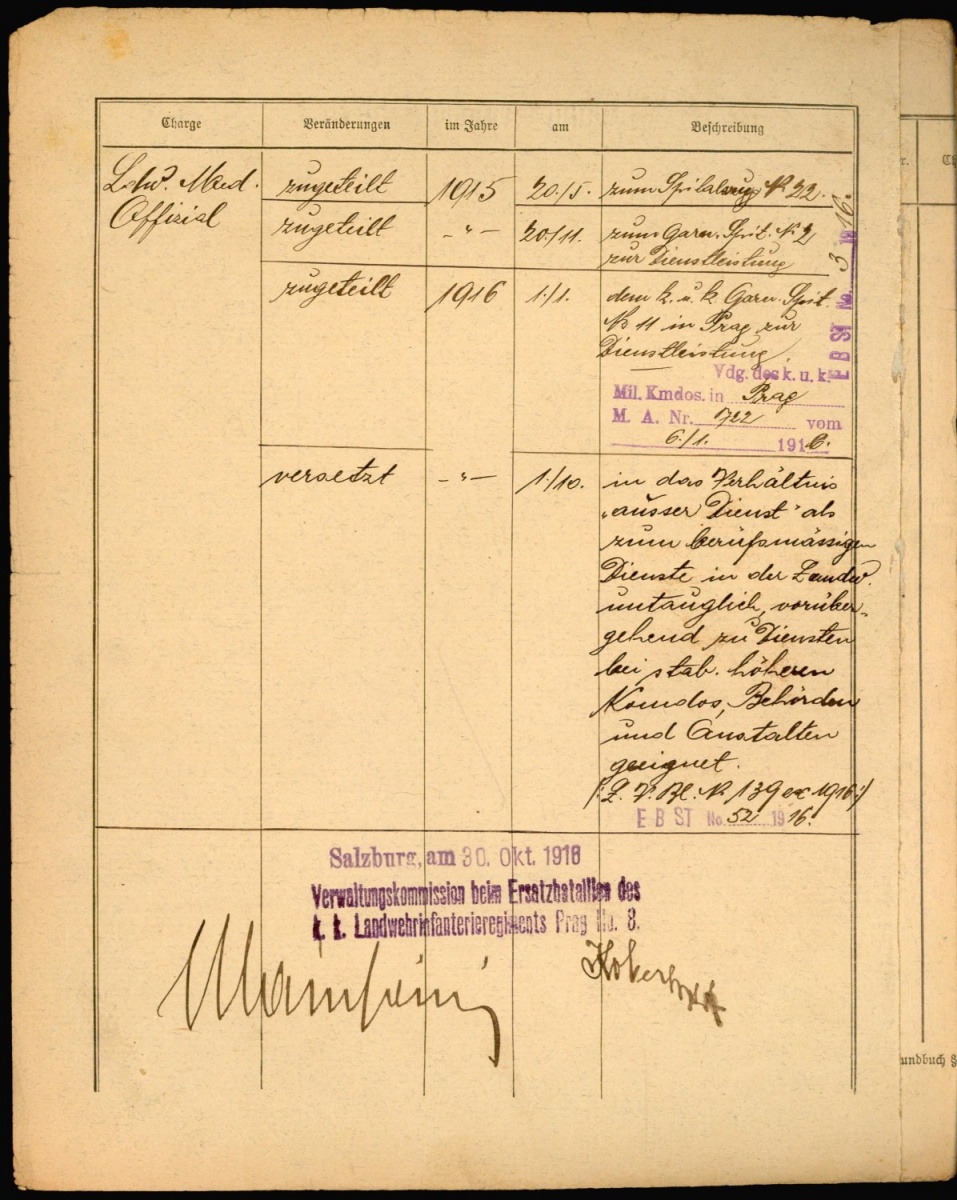 Charge Veränderungen im Jahre am Beschreibung
Ldw. Med. zugeteilt 1915 20./5. zum Spitalzug № 22.
Offizial zugeteilt -"- 20./11. zum Garn. Spit. № 2
zur Dienstleistung
zugeteilt 1916 1./1. dem k. u. k. Garn. Spit.
№ 11 in Prag zur
Dienstleistung.
E B ST No. 3 1916.
Vdg. des k. u. k.
Mil. Kmdos. in Prag
M. A. Nr. 722 vom
6./1. 1916.
versetzt -"- 1./10. in das Verhältnis
"ausser Dienst" als
zum berufsmässigen
Dienste in der Landw.
untauglich, vorüber-
gehend zu Diensten
bei stab. höheren
Komdos, Behörden
und Anstalten
geeignet.
(: L. V. Bl. № 139 ex 1916 :)
E B ST No. 52 1916.
Salzburg, am 30. Okt. 1916
Verwaltungskommission beim Ersatzbataillon des
k. k. Landwehrinfanterieregiments Prag No. 8.
undbuch §